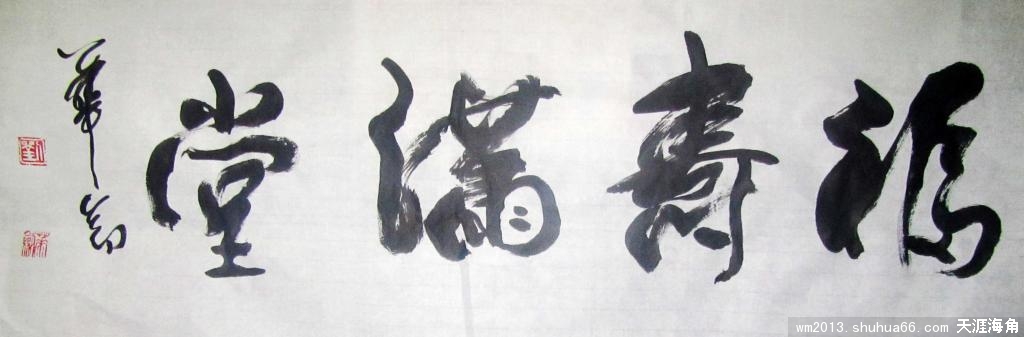 福壽滿堂
wm2013.shuhua66.com 天涯海角